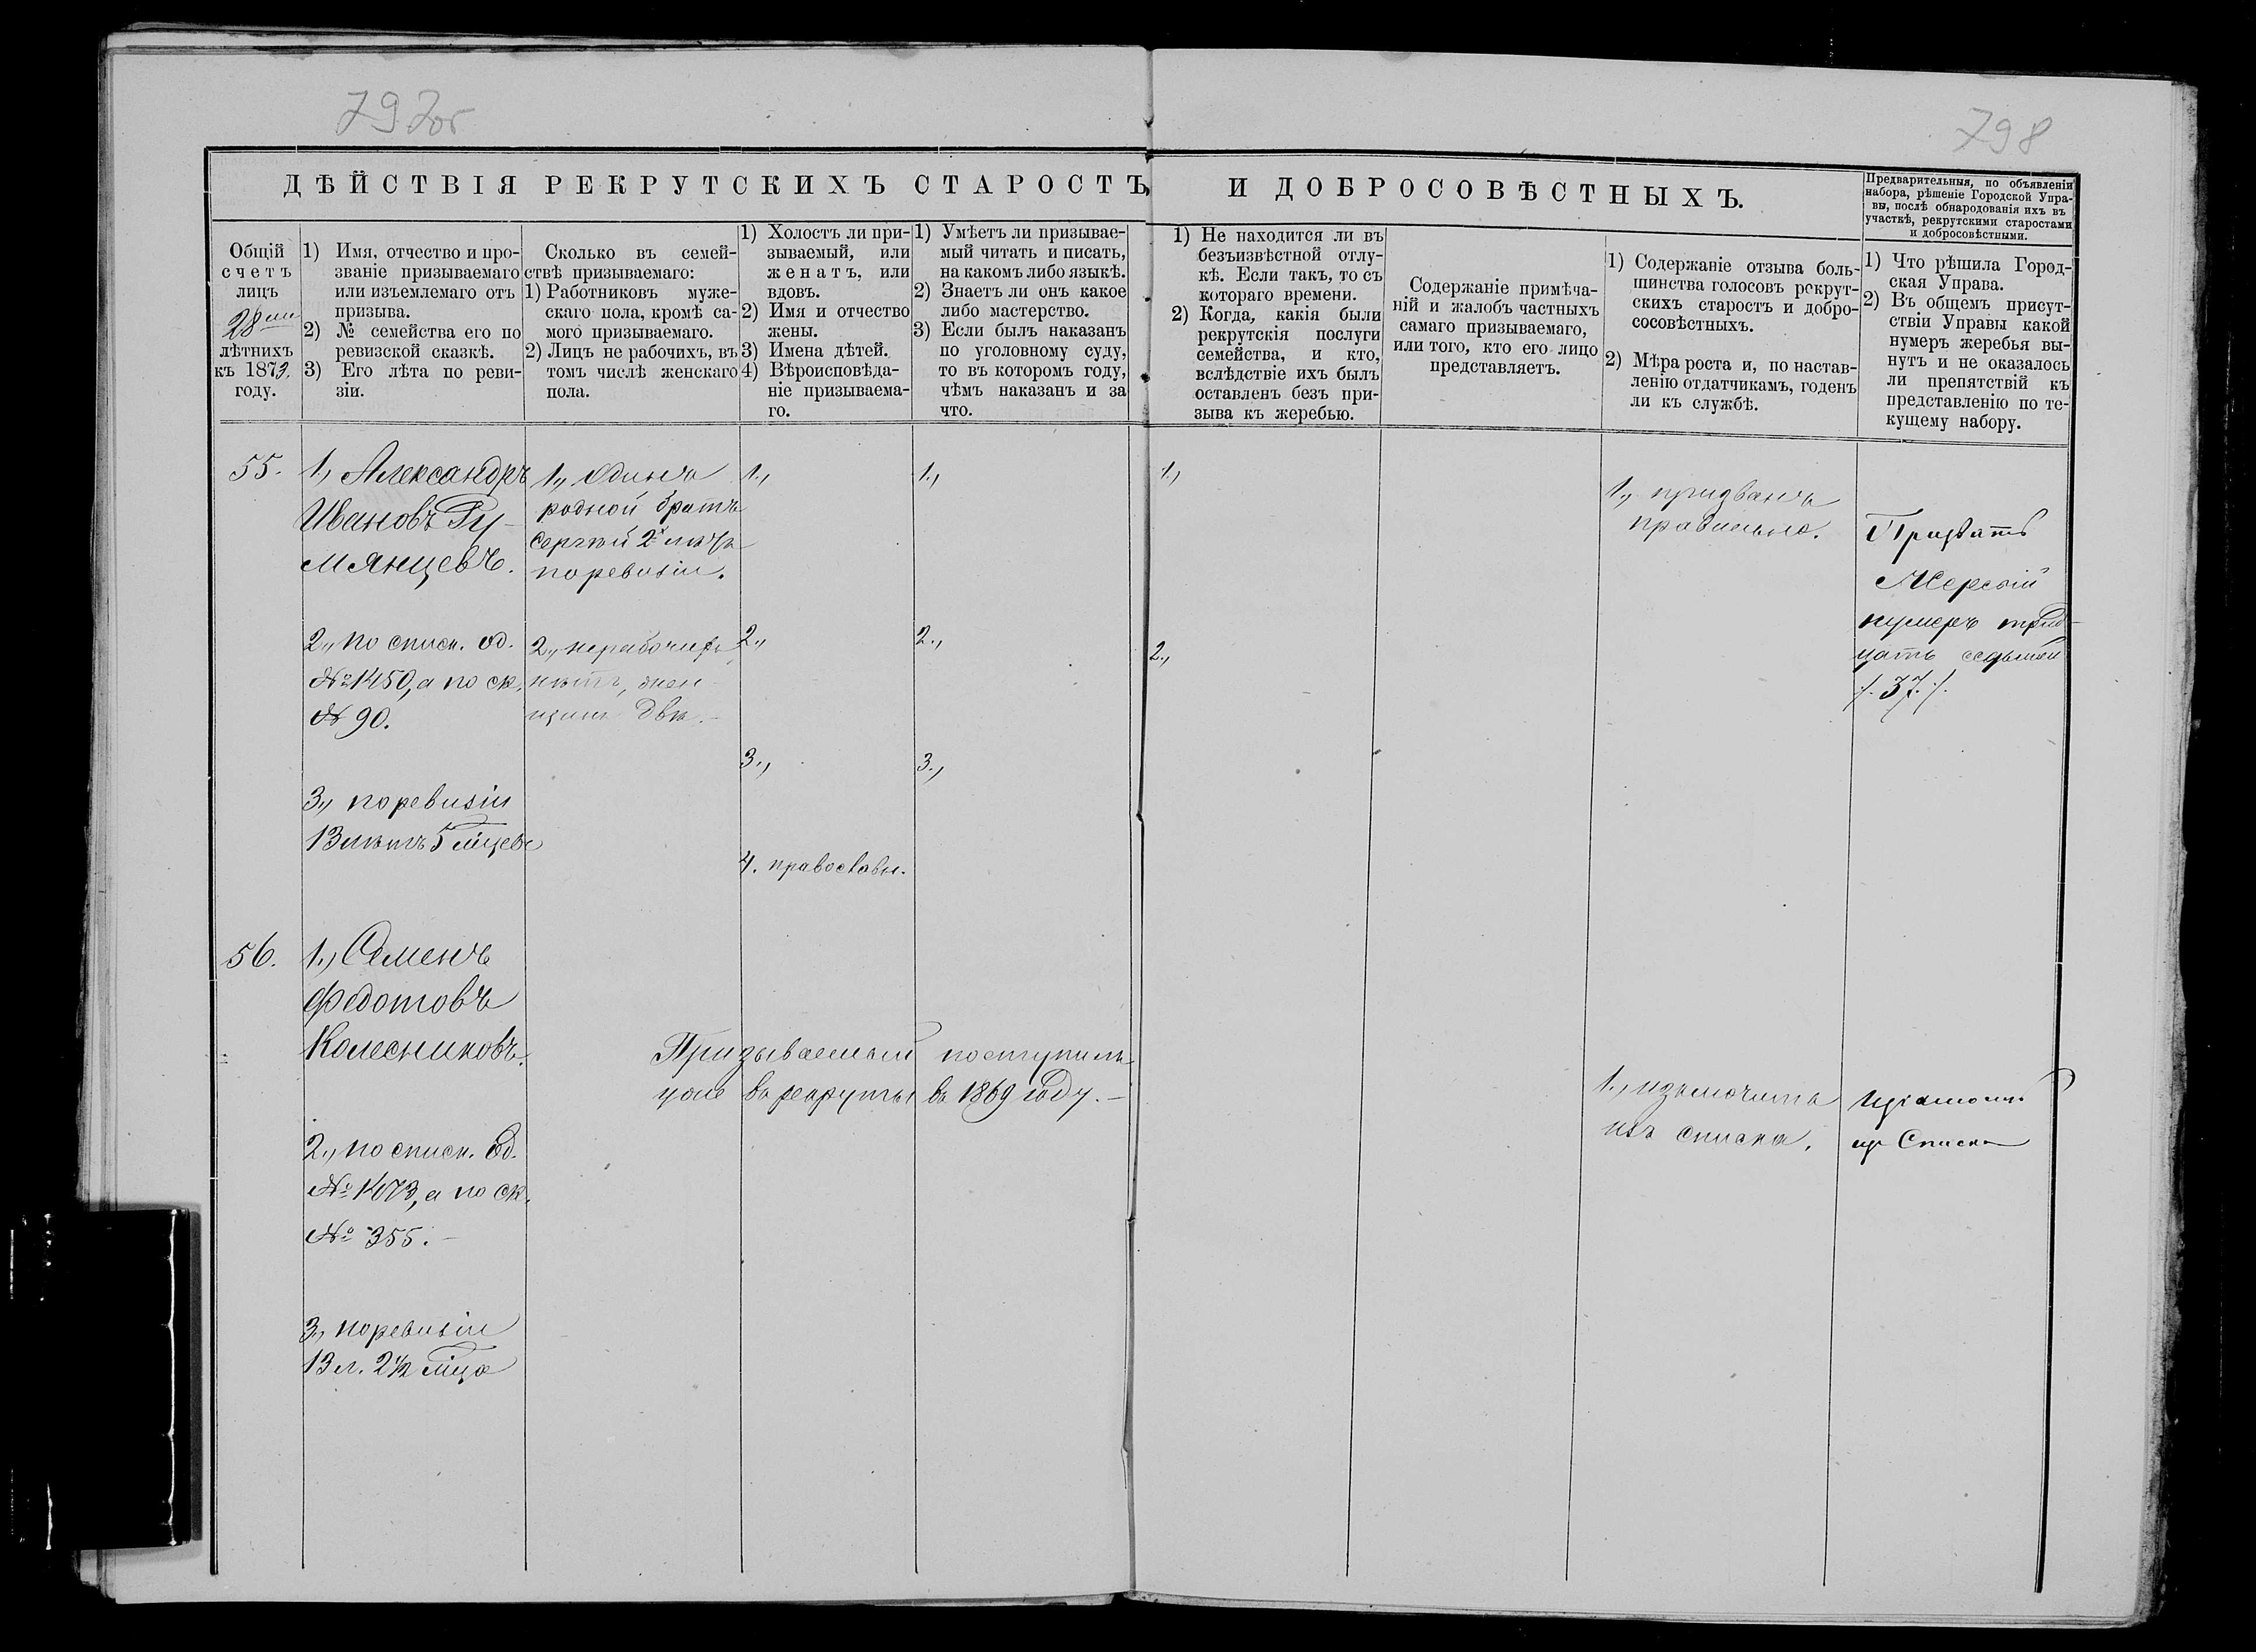 797об
798
ДѢЙСТВІЯ РЕКРУТСКИХЪ СТАРОСТЪ И ДОБРОСОВѢСТНЫХЪ.
Предварительныя, по объявленіи
набора, рѣшеніе Городской Упра-
вы, послѣ обнародованія ихъ въ
участкѣ, рекрутскими старостами
и добросовѣстными.
Общій
счетъ
лицъ
28ми
лѣтнихъ
къ 1873.
году.
1) Имя, отчество и про-
званіе призываемаго
или изъемлемаго отъ
призыва.
2) № семейства его по
ревизской сказкѣ.
3) Его лѣта по реви-
зіи.
Сколько въ семей-
ствѣ призываемаго:
1) Работниковъ муже-
скаго пола, кромѣ са-
мого призываемаго.
2) Лицъ не рабочихъ, въ
томъ числѣ женскаго
пола.
1) Холостъ ли при-
зываемый, или
женатъ, или
вдовъ.
2) Имя и отчество
жены.
3) Имена дѣтей.
4) Вѣроисповѣда-
ніе призываема-
го.
1) Умѣетъ ли призывае-
мый читать и писать,
на какомъ либо языкѣ.
2) Знаетъ ли онъ какое
либо мастерство.
3) Если былъ наказанъ
по уголовному суду,
то въ которомъ году,
чѣмъ наказанъ и за
что.
1) Не находится ли въ
безъизвѣстной отлу-
кѣ. Если такъ, то съ
котораго времени.
2) Когда, какія были
рекрутскія послуги
семейства, и кто,
вслѣдствіе ихъ былъ
оставленъ безъ при-
зыва къ жеребью.
Содержаніе примѣча-
ній и жалобъ частныхъ
самаго призываемаго,
или того, кто его лицо
представляетъ.
1) Содержаніе отзыва боль-
шинства голосовъ рекрут-
скихъ старостъ и добро-
сосовѣстныхъ.
2) Мѣра роста и, по настав-
ленію отдатчикамъ, годенъ
ли къ службѣ.
1) Что рѣшила Город-
ская Управа.
2) Въ общемъ присут-
ствіи Управы какой
нумеръ жеребья вы-
нутъ и не оказалось
ли препятствій къ
представленію по те-
кущему набору.
55.
1., Александръ
Ивановъ Ру-
мянцевъ.
2., по списк. од.
№ 1450, а по ск.
№ 90.
3., по ревизіи
13 лѣтъ 5 мцевъ
1., Одинъ
родной братъ
Сергѣй 2х лѣтъ
по ревизіи.
2., нерабочихъ
нѣтъ, жен-
щинъ двѣ.
1.,
2.,
3.,
4. православн.
1.,
2.,
3.,
1.,
2.,
1., призванъ
правильно.
Призвать
Жеребій
нумеръ трид-
цать седьмой
/. 37. /.
56.
1., Семенъ
Федотовъ
Колесниковъ.
2., по списк. од.
№ 1473, а по ск.
№ 355.
3., по ревизіи
13 л. 2½ мца
Призываемый поступилъ
уже въ рекруты въ 1869 году.
1., изключить
изъ списка.
изъ Списка